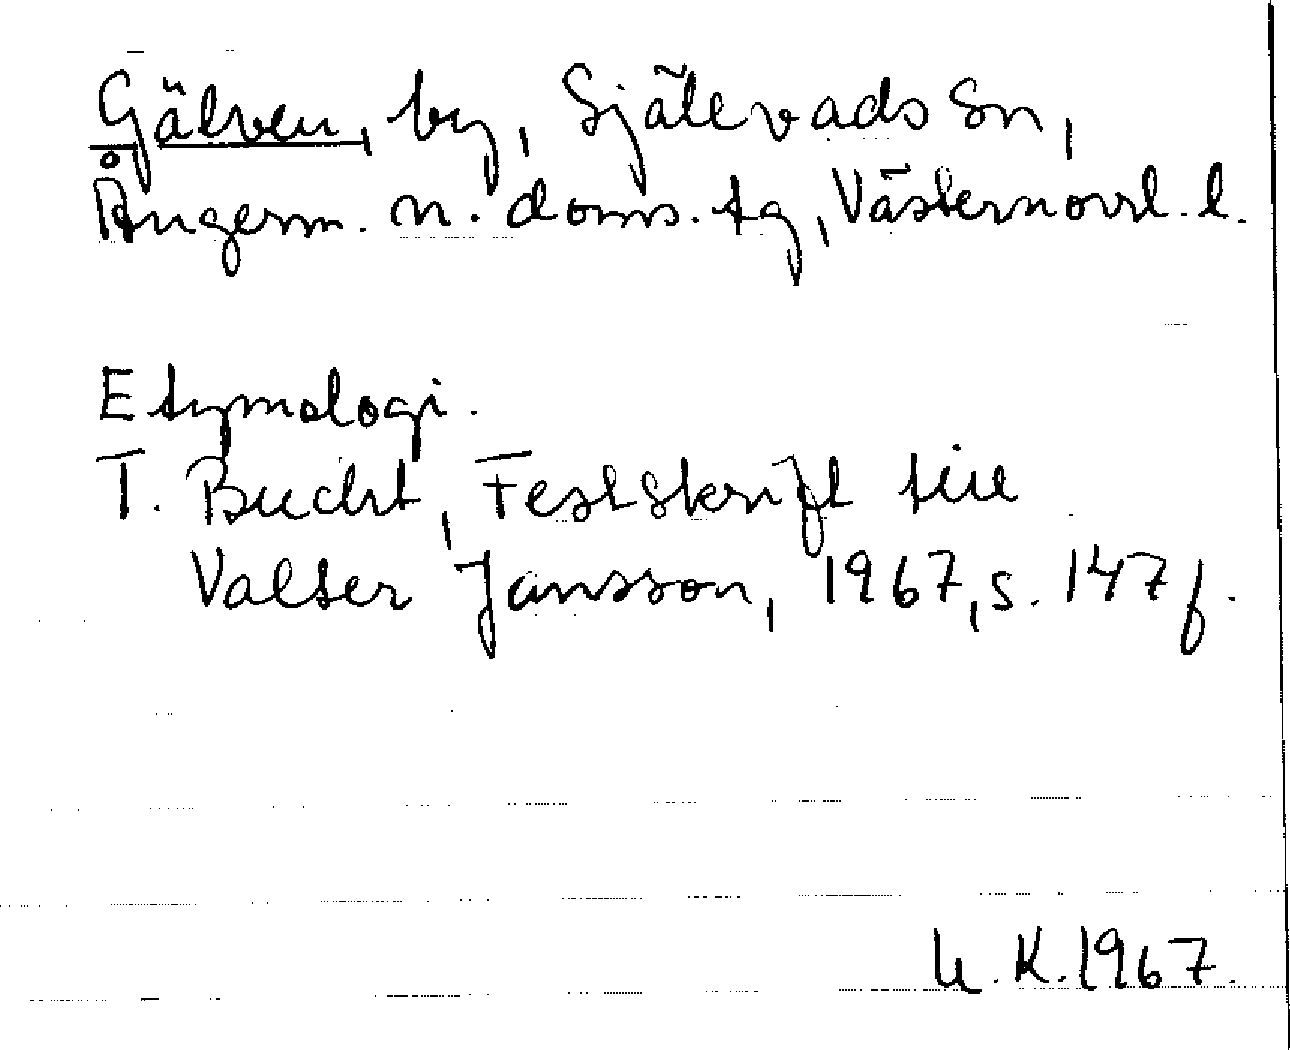 Gälven, by, Själevads Sn,
Ångerm. n. doms. tg, Västernorrl. l.
Etymologi.
T. Bucht, Festskrift till
Valter Jansson, 1967, s. 147 f.
U. K. 1967.